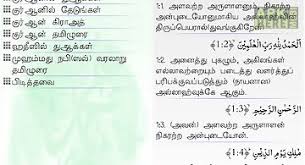 குர்ஆனில் தேடுங்கள்
குர்ஆன் கிராஅத்
குர்ஆன் தமிழுரை
ஹதீஸில் துஆக்கள்
முஹம்மது நபி(ஸல்) வரலாறு
தமிழுரை
பிடித்தவை
1:1 அளவற்ற அருளாளனும் நிகரற்ற
அன்புடையோனுமாகிய
திருப்பெயரால்(துவங்குகிறேன்).
الْحَمْدُ لِلَّهِ رَبِّ الْعَالَمِينَ ﴿1:2﴾
1:2 அனைத்து புகழும், அகிலங்கள்
எல்லாவற்றையும் படைத்து வளர்த்துப்
பரிபக்குவப்படுத்தும் (நாயனான)
அல்லாஹ்வுக்கே ஆகும்.
الرَّحْمَٰنِ الرَّحِيمِ ﴿1:3﴾
1:3 (அவன்) அளவற்ற அருளாளன்
நிகரற்ற அன்புடையோன்.
مَالِكِ يَوْمِ الدِّينِ ﴿1:4﴾